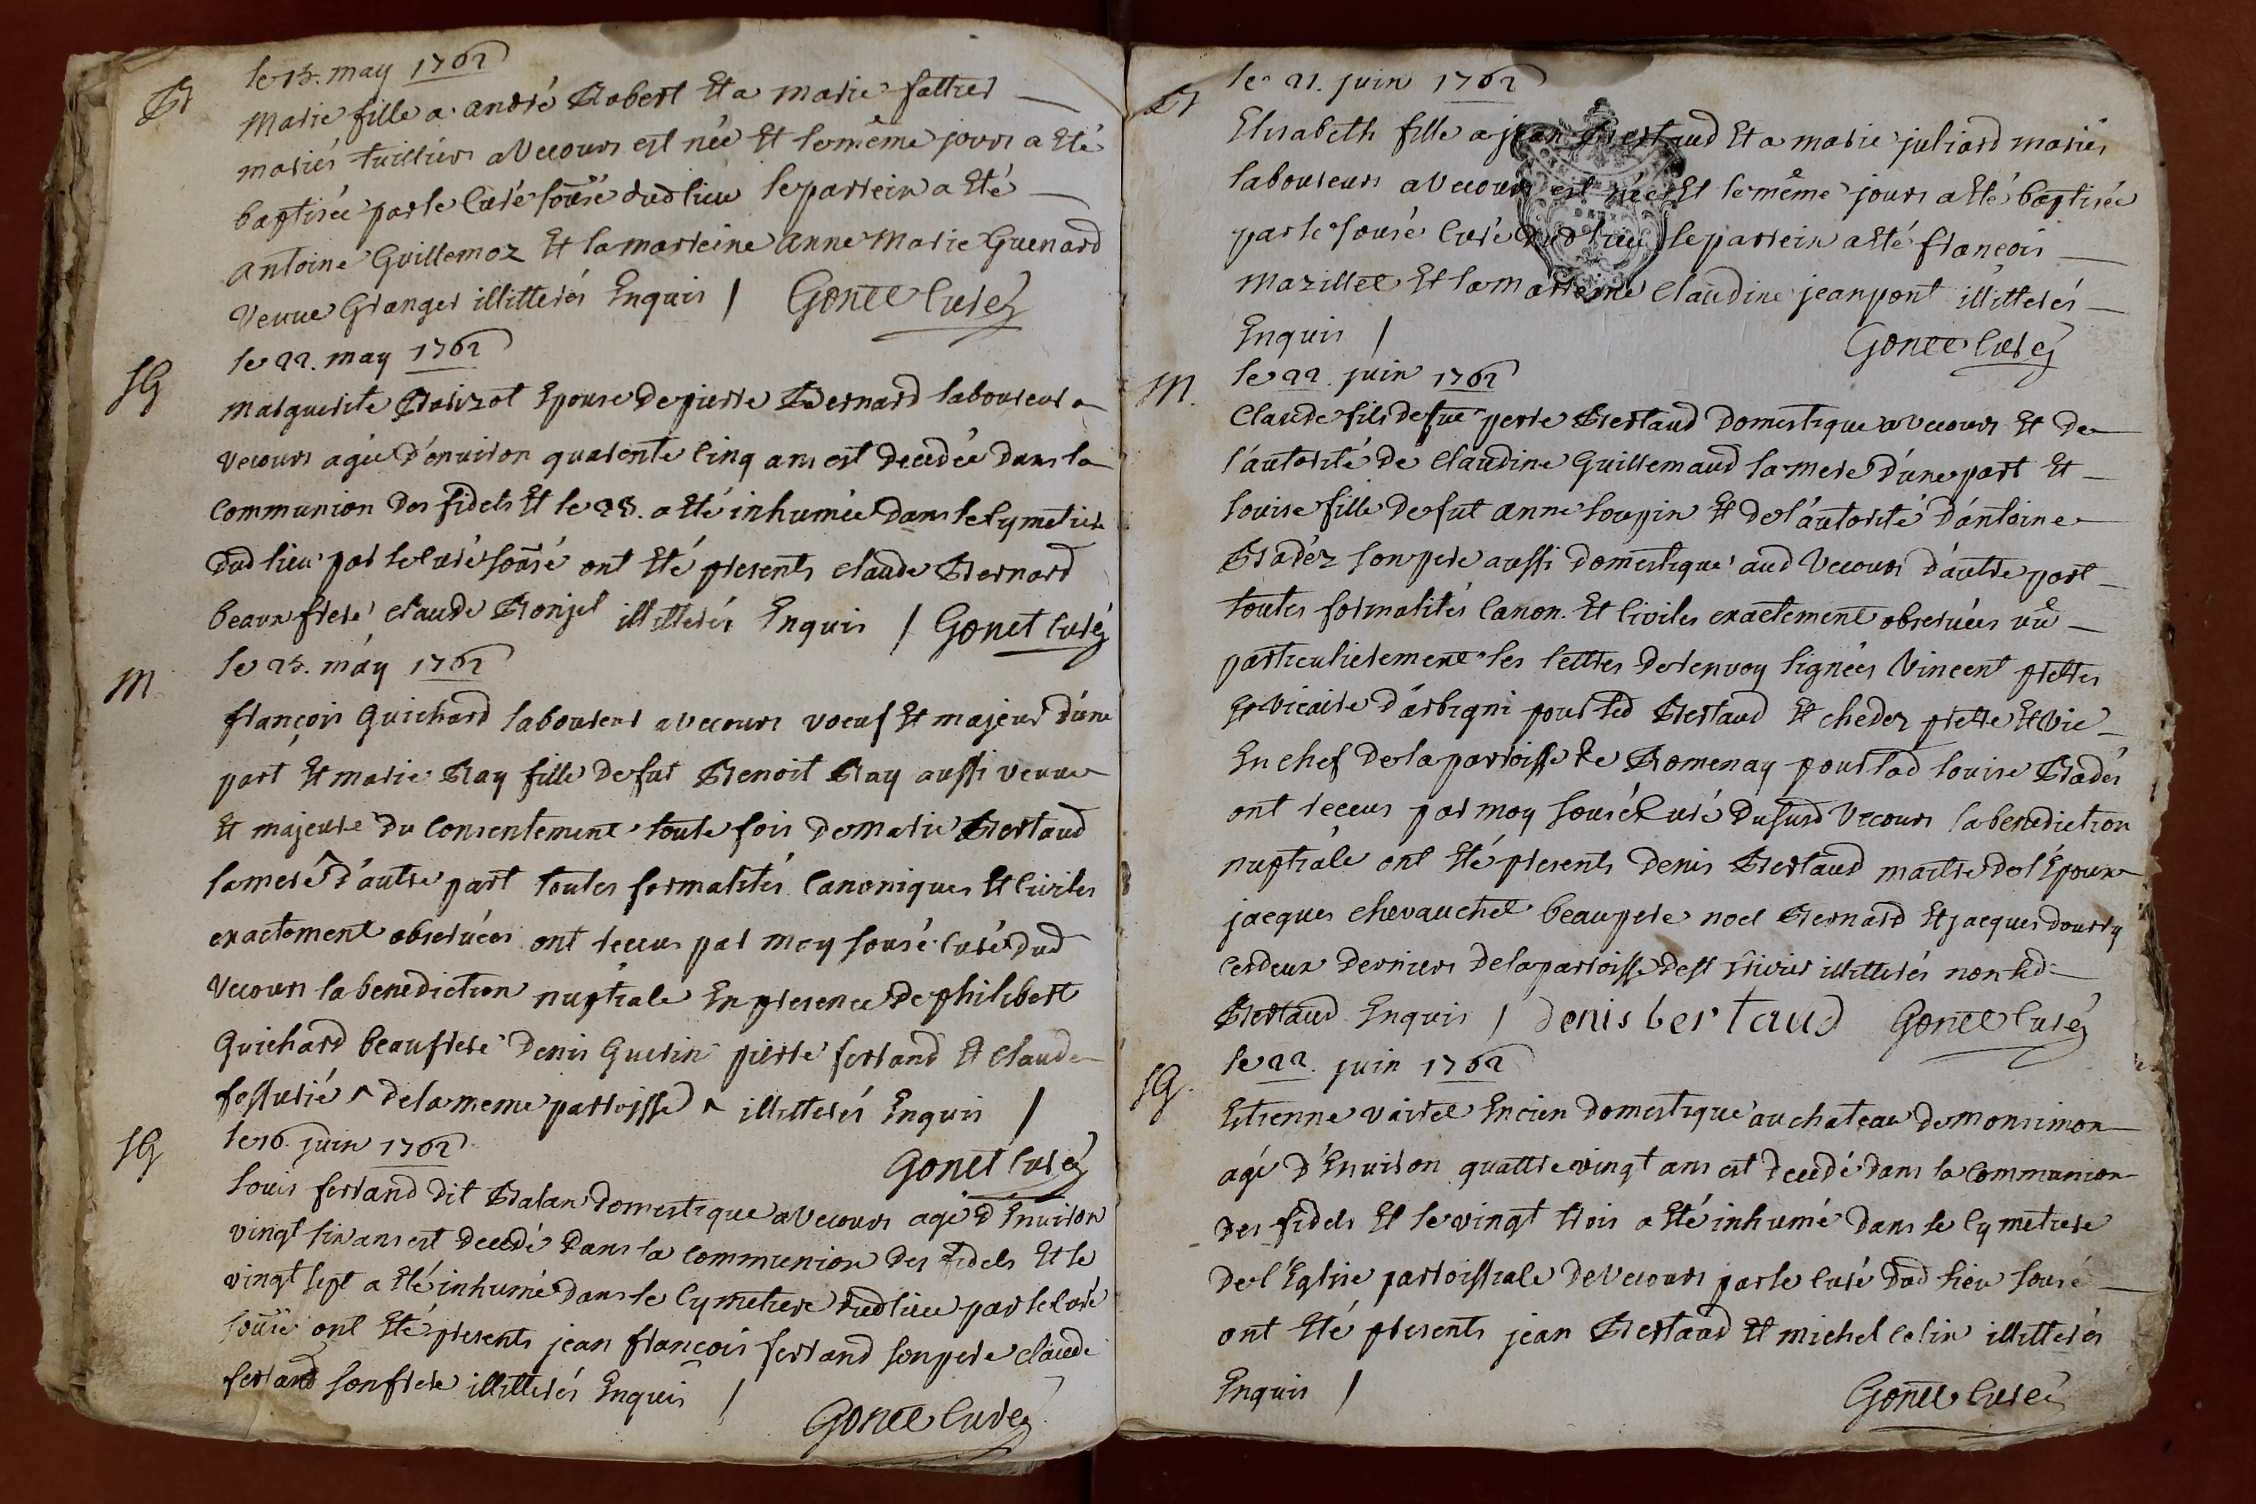 B
le 13. may 1762
marie fille a andré Robert Et a marie fattier
mariés tuilliers a Vecours est née Et le même jours a Eté
baptisée par le Curé sousé dud lieu le parrein a Eté
antoine Guillemoz Et la marreine anne marie Guenard
veuve Granger illitterés Enquis / Gonet Curé
SG
le 22. may 1762
marguerite Epouse de pierre Bernard laboureur a
vecours agée d'environ quarente cinq ans est decedée dans la
communion des fidels Et le 23. a Eté inhumée dans le Cymetiere
dud lieu par le Curé sousé ont Eté presents claude Bernard
beaux frere claude illitterés Enquis / Gonet Curé
M
le 25. may 1762
françois Guichard laboureur a vecours voeuf Et majeur d'une
part Et marie Ray fille de fut Benoit Ray aussi veuve
Et majeure du consentement toute fois de marie Bertaud
sa mere d'autre part toutes formalités Canoniques Et Civiles
exactement observées ont receus par moy sousé Curé dud
Vecours la benediction nuptiale En presence de philibert
Guichard beaufrere denis Guerin pierre ferrand Et claude
^ de la meme parroisse ^ illitterés Enquis /
Gonet Curé
SG
le 26. juin 1762
Louis ferrand dit Balan domestique a Vecours agé d'Environ
vingt six ans est decedé dans la communion des fidels Et le
vingt sept a Eté inhumé dans le Cymetiere dud lieu par le Curé
sousé ont Eté presents jean françois ferrand son pere claude
ferrand son frere illitterés Enquis /
Gonet Curé
B
le 21. juin 1762
Elisabeth fille a jean Bertaud Et a marie juliard mariés
laboureurs a Vecours est née Et le même jours a Eté baptisée
par le sousé Curé dud lieu le parrein a Eté françois
mazillet Et la marreine claudine jeanpont illitterés
Enquis /
Gonet Curé
M.
le 22. juin 1762
Claude fils de fut perre Bertaud domestique a vecours Et de
l'autorité de claudine Guillemaud sa mere d'une part Et
Louise fille de fut anne Loupin Et de l'autorité d'antoine
Badéz son pere aussi domestique aud Vecours d'autre part
toutes formalités Canon. Et Civiles exactement observées vû
particulierement les lettres de renvoy signées Vincent pretre
Et vicaire d'arbigni pour led Bertaud Et chedez pretre Et vic
En chef de la parroisse de Romenay pour lad Louise Badés
ont receus par moy sousé Curé dusud Vecours la benediction
nuptiale ont Eté presents denis Bertaud maitre de l'Epoux
jacques chevauchet beaupere noel Bernard Et jacques dourry
ces deux derniers de la parroisse de st trivier illitterés non led
Bertaud Enquis / denis bertaud Gonet Curé
SG.
le 22. juin 1762
Etienne vairet Encien domestique au chateau de monsimon
agé d'Environ quattre vingt ans est decedé dans la communion
des fidels Et le vingt trois a Eté inhumé dans le Cymetiere
de l'Eglise parroissiale de Vecours par le Curé dud lieu sousé
ont Eté presents jean Bertaud Et michel Colin illitterés
Enquis /
Gonet Curé